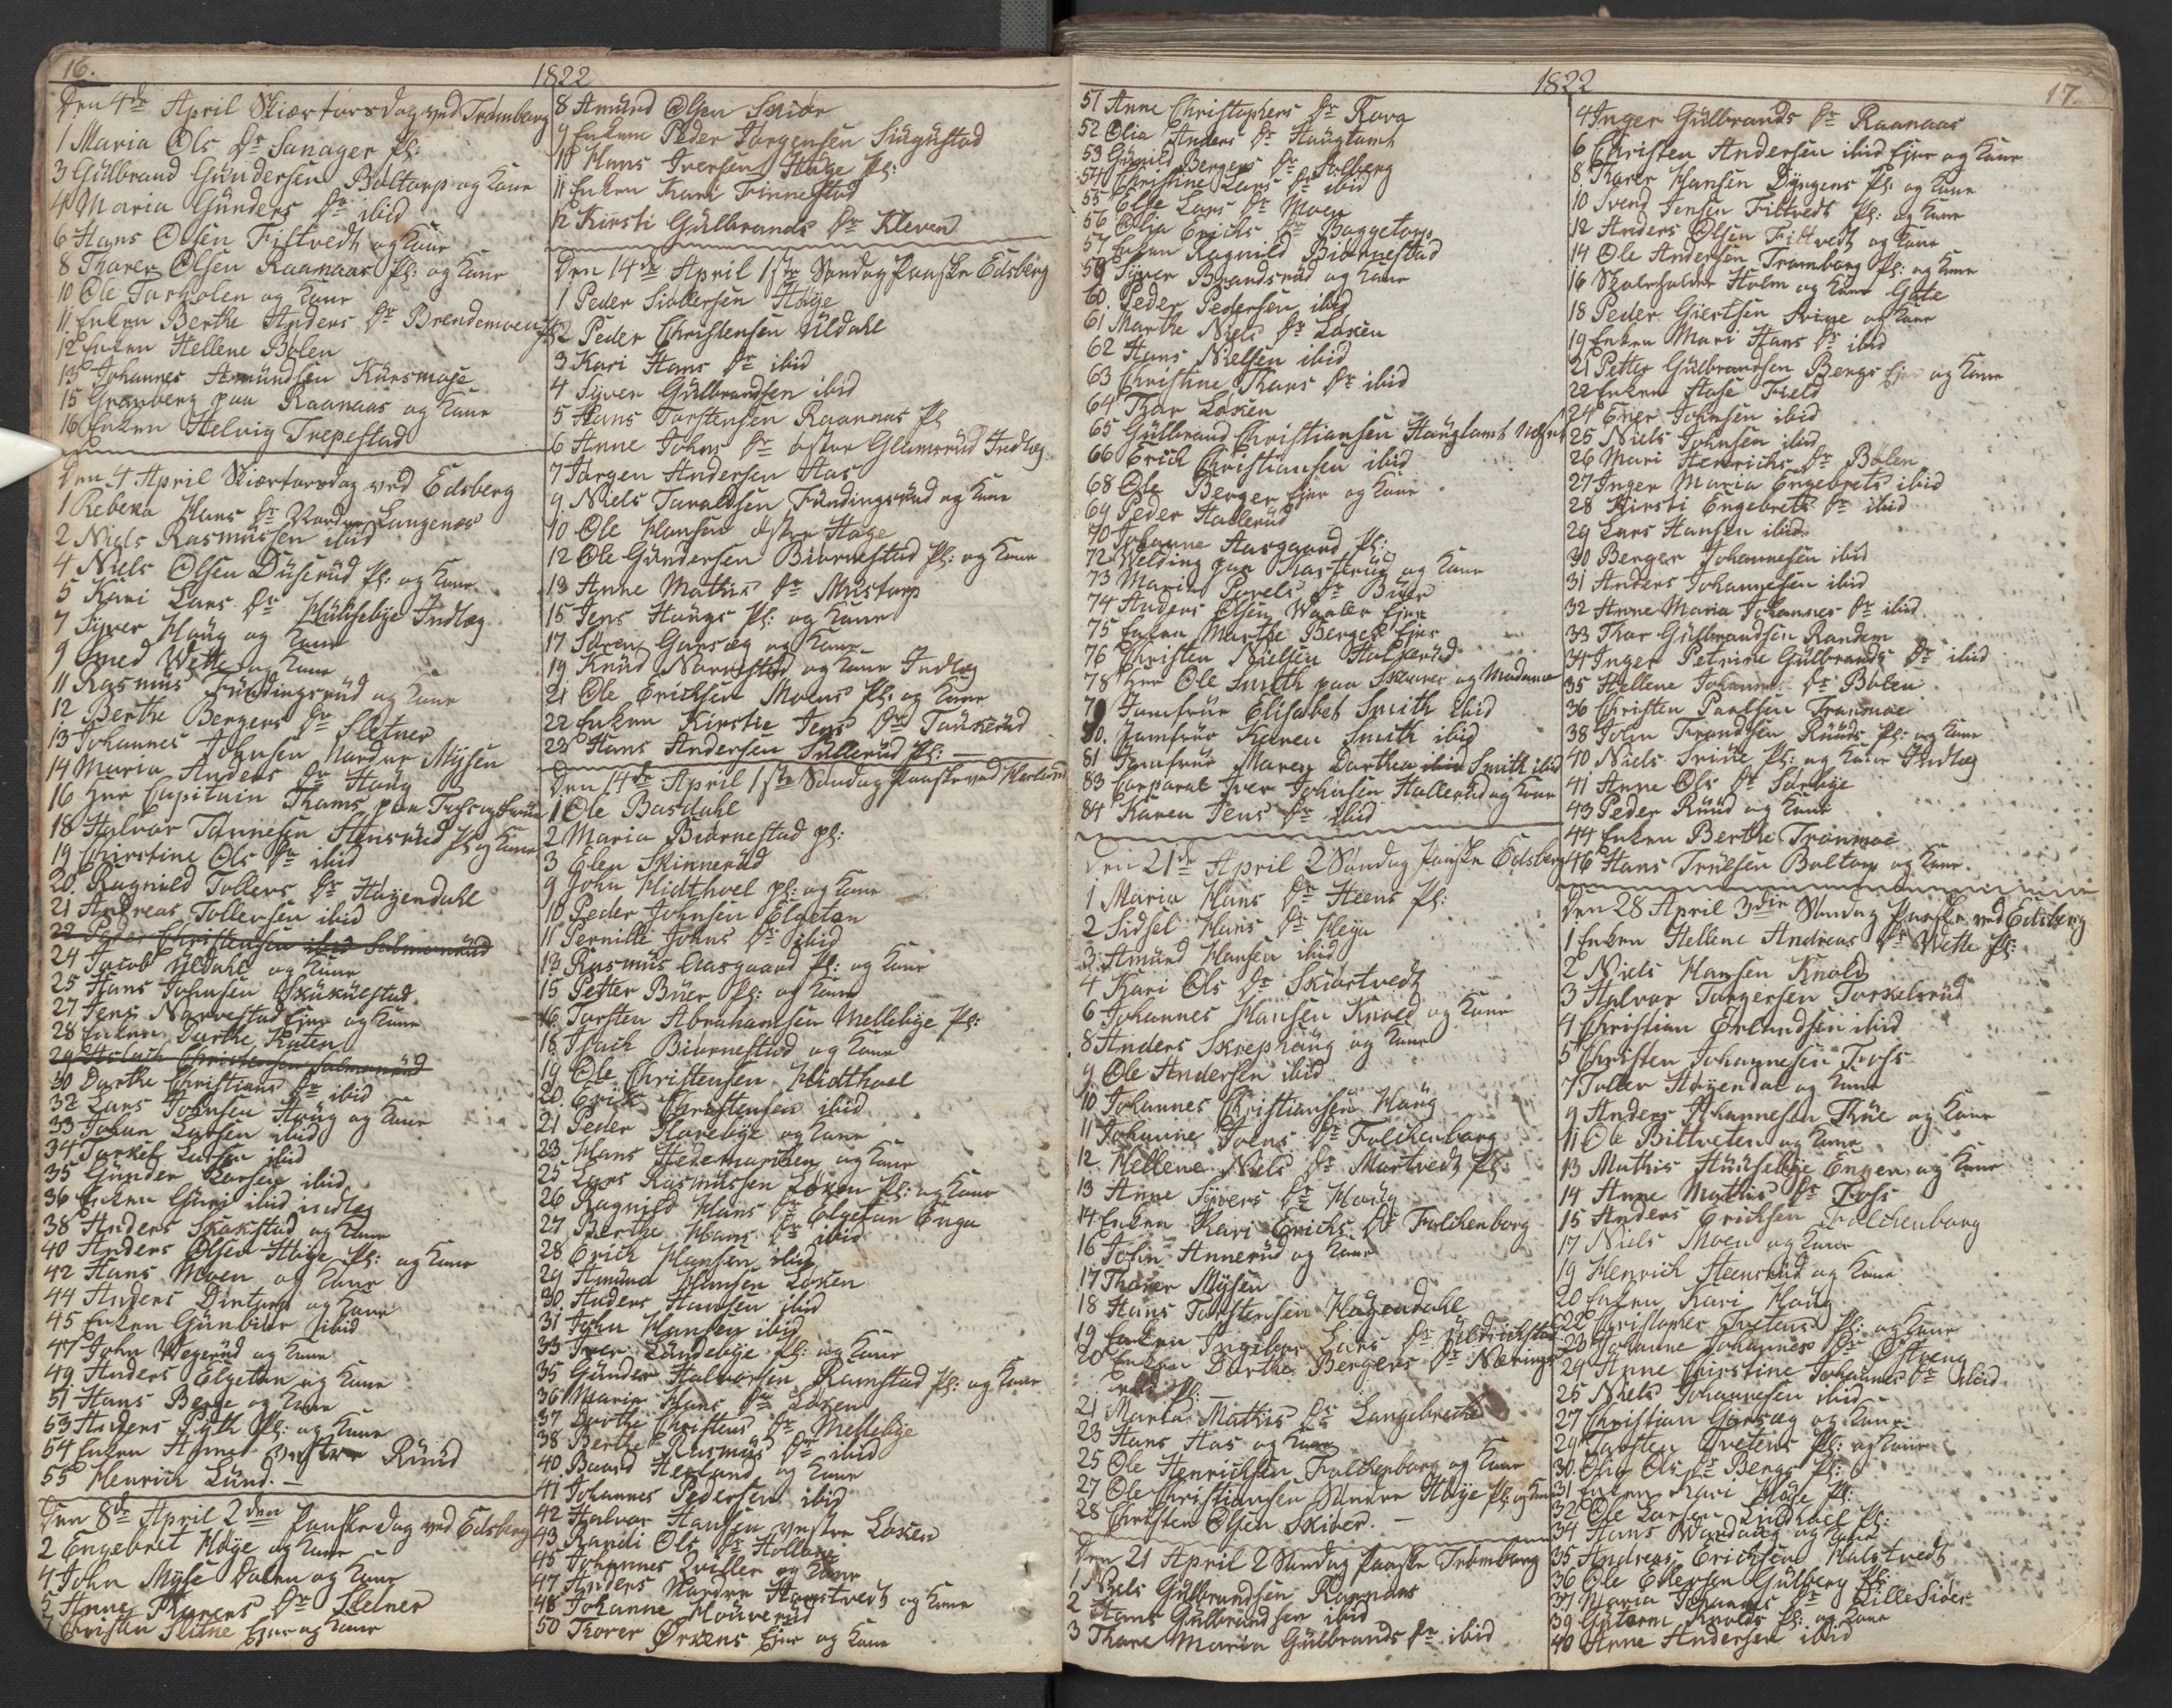 16.
1822
Den 4de April Skiærtorsdag ved Trømborg
1 Maria Ols Dr Sanager Pl:
3 Gülbrand Gündersen Boltorp og Kone
4 Maria Günders Dr ibid
6 Hans Olsen Filtvedt og Kone
8 Tharer Olsen Raanaas Pl: og Kone
10 Ole Torholen og Kone
11. Enken Berthe Anders Dr Brendemoen
12 Enken Hellene Bølen
13 Johannes Amündsen Kürsmoje
15 Grønberg paa Raanaas og Kone
16 Enken Helvig Trepestad
Den 4 April Skiærtorsdag ved Edsberg
1 Rebeka Hans Dr Nordre Langenæs
2 Niels Rasmüssen ibid
4 Niels Olsen Düserüd Pl: og Kone
5 Kari Lars Dr Hüüsebye Indlæg
7 Syver Haüg og Kone
9 Smed Wette og Kone
11 Rasmüs Fündingsrüd og Kone
12 Berthe Bergers Dr Sletner
13 Johannes Johnsen Nordre Mysen
14 Maria Anders Dr Haüg
16 Herr Capitain Thams paa Foss og Früe
18 Halvor Tannesen Stensrüd Pl og Kone
19 Christine Ols Dr ibid
20. Ragnild Tollevs Dr Høyendahl
21 Andreas Tollevsen ibid
22 Peder Christensen ibid Salmonrüd
24 Jacob Üldahl og Kone
25 Hans Johnsen Skükülstad
27 Jens Narvestad Ejer og Kone
28 Enken Dorthe Katen
29 Christensen Salmonrüd
30 Dorthe Christians Dr ibid
32 Lars Johnsen Haüg og Kone
33 Johan Larsen ibid
34 Torkel Larsen ibid
35 Günder Larsen ibid
36 Enken Güri ibid indlæg
38 Anders Skakstad og Kone
40 Anders Olsen Høye Pl: og Kone
42 Hans Moen og Kone
44 Anders Dintorp og Kone
45 Enken Günbior ibid
47 John Wegerüd og Kone
49 Anders Elgetun og Kone
51 Hans Berge og Kone
53 Anders Pigth Pl: og Kone
54 Enken Agnet Østre Rüüd
55 Henrich Lünd. —
Den 8de April 2den Paaske dag ved Edsberg
2 Engebret Høye og Kone
4 John Myse Dalen og Kone
5 Anne Harens Dr Sletner
7 Christen Slitue Ejer og Kone
8 Amünd Olsen Skiør
9 Enken Peder Jørgensen Siügüstad
10 Hans Iversen Høye Pl:
11 Enken Kari Finnestad
12 Kirsti Gülbrands Dr Kleven
Den 14de April 1ste Søndag Paaske Edsberg
1 Peder Siøllersen Høye
2 Peder Christensen Üldahl
3 Kari Hans Dr ibid
4 Syver Gülbrandsen ibid
5 Hans Torstensen Raanaas Pl
6 Anne Johns Dr østre Glemsrüd Indlæg
7 Jørgen Andersen Aas
9. Niels Taraldsen Fündingsrüd og Kone
10 Ole Hansen østre Høye
12 Ole Gündersen Biørnestad Pl: og Kone
13 Anne Mathis Dr Mustorp
15 Jens Haügs Pl: og Kone
17 Søren Garsæg og Kone
19 Knüd Narvestad og Kone Indlæg
21 Ole Erichsen Moens Pl: og Kone
22 Enken Kirstie Jens Dr Taükerüd
23 Hans Andersen Sullerüd Pl: —
Den 14de April 1ste Søndag Paaske ved Herland
1 Ole Basdahl
2 Maria Biørnestad pl:
3 Elen Skinnerüd
9 John Midthoel pl: og Kone
10 Peder Johnsen Elgetun
11 Pernille Johns Dr ibid
13 Rasmüs Aasgaard Pl: og Kone
15 Petter Büer Pl: og Kone
16. Torsten Abrahamsen Mellebye Pl:
18. Isach Biørnestad og Kone
19 Ole Christensen Midthoel
20. Erich Christensen ibid
21 Peder Harebye og Kone
23 Hans Hedemarchen og Kone
25 Lars Rasmüssen Løken Pl: og Kone
26 Ragnild Hans Dr Elgetun Enga
27 Berthe Hans Dr ibid
28 Erich Hansen ibid
29 Amünd Hansen Løken
30. Anders Hansen ibid
31 John Hansen ibid
33 Iver Ländebye Pl: og Kone
35 Günder Halvorsen Ramstad Pl: og Kone
36 Maria Hans Dr Løken
37 Dorthe Christens Dr Mellebye
38 Berthe Rasmüs Dr ibid
40 Baard Herland og Kone
41 Johannes Pedersen ibid
42 Halvor Hansen vestre Løken
43 Randi Ols Dr Holløs
45 Johannes Qviller og Kone
47 Anders Nordre Hamstvedt og Kone
48 Johanne Hoüverüd
50 Thorer Ørkens Ejer og Kone
1822
17.
51 Anne Christophers Dr Kova
52 Olia Anders Dr Haüglamt
53 Günild Bergers Dr Solberg
54 Christine Lars Dr ibid
55 Else Lars Dr Moen
56 Olia Erichs Dr Baggetorp
57 Enken Ragnild Biørnestad
59 Syver Brandsrüd og Kone
60. Peder Pedersen ibid
61 Marthe Niels Dr Løken
62 Hans Nielsen ibid
63 Christine Thors Dr ibid
64 Thor Løken
65 Gülbrand Christiansen Haüglamt
66 Erich Christiansen ibid
68 Ole Berger Ejer og Kone
69 Peder Hallerüd
70 Johanne Aasgaard Pl:
72 Welding paa Kastrüd og Kone
73 Maria Povels Dr Büer
74 Anders Olsen Waaler Ejer
75 Enken Marthe Berger Ejer
76 Christen Nielsen Hallerüd
78 Herr Ole Smith paa Skaarer og Madame
79 Jomfrüe Elisabet Smith ibid
80. Jomfrüe Karen Smith ibid
81 Jomfrüe Maren Dorthea ibid Smith ibid
83 Corporal Iver Johnsen Hallerüd og Kone
84 Karen Jens Dr ibid
Den 21de April 2 Søndag Paaske Edsberg
1 Maria Hans Dr Heens Pl:
2 Sidsel Hans Dr Heyø
3 Amünd Hansen ibid
4 Kari Ols Dr Skiørtvedt
6 Johannes Hansen Knold og Kone
8 Anders Skrephaüg og Kone
9 Ole Andersen ibid
10 Johannes Christiansen Haüg
11 Johanne Joens Dr Folchenborg
12. Hellene Niels Dr Martvedt Pl:
13 Anne Syvers Dr Haüg
14 Enken Kari Erichs Dr Folchenborg
16 John Annerüd og Kone
17 Thorer Mysen
18 Hans Torstensen Høyendahl
19 Enken Ingeborg Lars Dr Üldrichstad
20 Enken Dorthe Bergers Dr Nærings-
rüd Pl: —
21 Marta Mathis Dr Langebreche
23 Hans Aas og Kone
25 Ole Henrichsen Folchenborg og Kone
27 Ole Christiansen Søndre Høye Pl: og Kone
28 Christen Olsen Skiber. —
Den 21 April 2 Søndag Paaske Trømborg
1 Niels Gülbrandsen Raanaas
2 Hans Gülbrandsen ibid
3 Thore Maria Gülbrands Dr ibid
4 Inger Gülbrands Dr Raanaas
6 Christen Andersen ibid Ejer og Kone
8 Thorer Hansen Dyngens Pl: og Kone
10 Svend Jensen Fittvedt Pl: og Kone
12 Anders Olsen Fittvedt og Kone
14 Ole Andersen Trømborg Pl: og Kone
16 Skoleholder Holm og Kone Gote
18 Peder Giertsen Sviue og Kone
19 Enken Mari Hans Dr ibid
21 Petter Gülbrandsen Bergs Ejer og Kone
22 Enken Aase Field
24 Ener Johnsen ibid
25 Niels Johnsen ibid
26 Mari Henrichs Dr Bølen
27 Inger Maria Engebrets ibid
28 Kirsti Engebrets Dr ibid
29 Lars Hansen ibid
30 Berger Johannesen ibid
31 Anders Johannesen ibid
32 Anne Maria Johannes Dr ibid
33 Thor Gülbrandsen Randem
34 Inger Petrine Gülbrands Dr ibid
35 Hellene Johannes Dr Bølen
36 Christen Paulsen Trønmoe
38 John Frandsen Rüüds Pl: og Kone
40 Niels Sviüe Pl: og Kone Indlæg
41 Anne Ols Dr Sørbye
43 Peder Rüüd og Kone
44 Enken Berthe Trønmoe
46 Hans Trülsen Boltorp og Kone.
Den 28 April 3die Søndag Paaske ved Edsberg
1 Enken Hellene Andreas Dr Wette Pl:
2 Niels Hansen Knold
3 Halvor Torgersen Torkelsrüd
4 Christian Erlandsen ibid
5 Christen Johannesen Foss
7 Toller Høyendal og Kone
9 Anders Johannesen Thüe og Kone
11 Ole Bitteten og Kone
13 Mathis Hüüsebye Engen og Kone
14 Anne Mathis Dr Foss
15 Anders Erichsen Folchenborg
17 Niels Moen og Kone
19 Henrich Steensrüd og Kone
20 Enken Kari Haüg
22 Christopher Tvetens Pl: og Kone
23 Johanne Johannes Dr Østeng
24 Anne Christine Johannes Dr ibid
25 Niels Johannesen ibid
27 Christian Garsæg og Kone
29 Torsten Tvetens Pl: og Kone
30. Olia Ols Dr Berge Pl:
31 Enken Kari Høye Pl:
32 Ole Larsen Pl:
34 Hans Nordaug og Kone
35 Andreas Erichsen Halstvedt
36 Ole Edersen Gülberg Pl:
37 Maria Johannes Dr Lille Siøer
39 Guttorm Knolds Pl: og Kone
40 Anne Andersen ibid